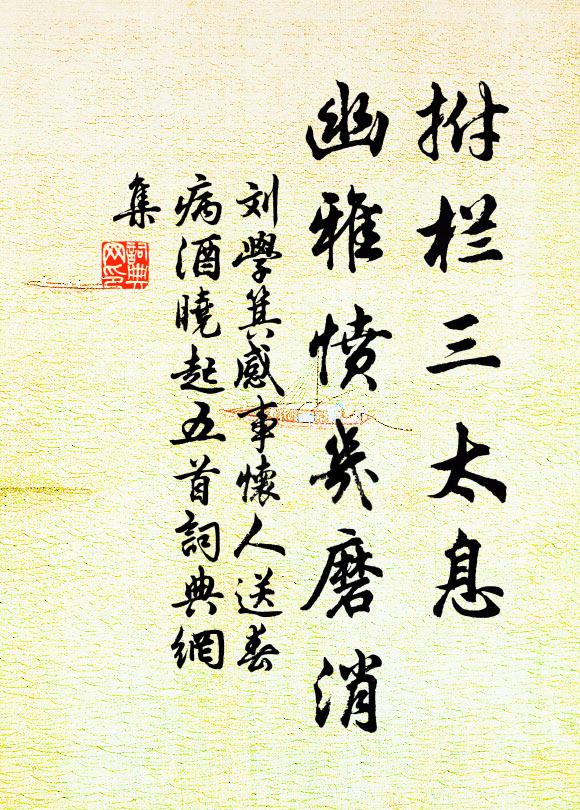 拊栏三太息
幽雅愤幾磨消
刘學箕感事懷人送春
病酒曉起五首詞典網
集
詞典
网印